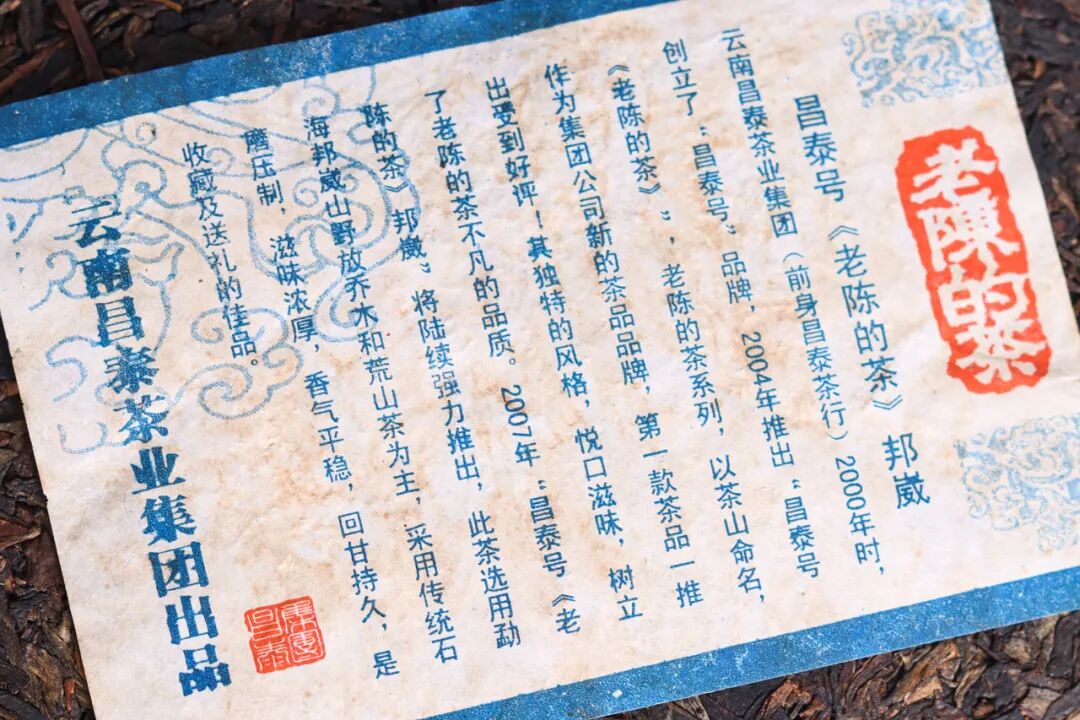 老陳的茶
昌泰号《老陈的茶》邦崴
云南昌泰茶业集团（前身昌泰茶行）2000年时，
创立了“昌泰号”品牌，2004年推出“昌泰号
《老陈的茶》”，老陈的茶系列，以茶山命名，
作为集团公司新的茶品品牌，第一款茶品一推
出受到好评！其独特的风格，悦口滋味，树立
了老陈的茶不凡的品质。2007年“昌泰号《老
陈的茶》邦崴”将陆续强力推出，此茶选用勐
海邦崴山野放乔木和荒山茶为主，采用传统石
磨压制，滋味浓厚，香气平稳，回甘持久，是
收藏及送礼的佳品。
云南昌泰茶业集团出品